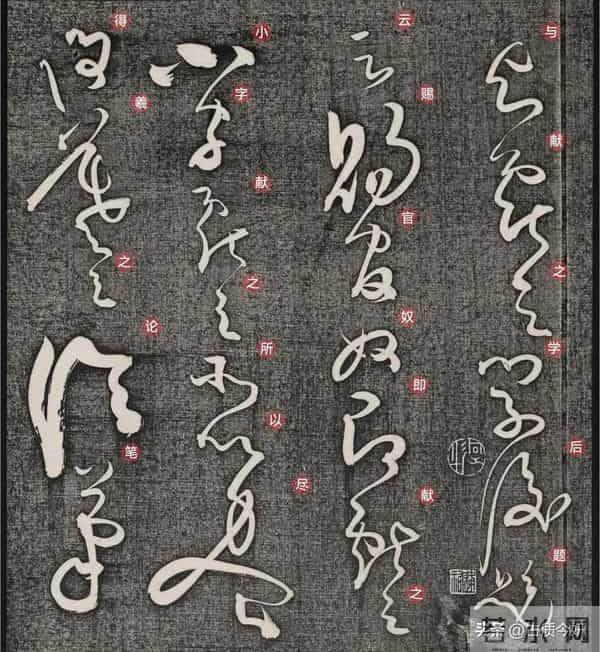 与献之学后题
云赐官奴即献之
小字献之所以尽
得羲之论笔
头条 @古质今妍